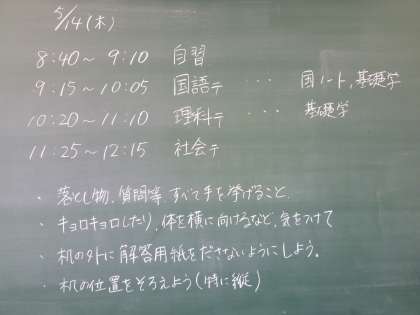 5/14(木)
8:40~9:10 自習
9:15~10:05 国語テ ・・・ 国ノート,基礎学
10:20~11:10 理科テ ・・・ 基礎学
11:25~12:15 社会テ
・落とし物、質問等 すべて手を挙げること.
・キョロキョロしたり、体を横に向けるなど、気をつけて
・机の外に解答用紙をださないようにしよう。
・机の位置をそろえよう(特に縦)